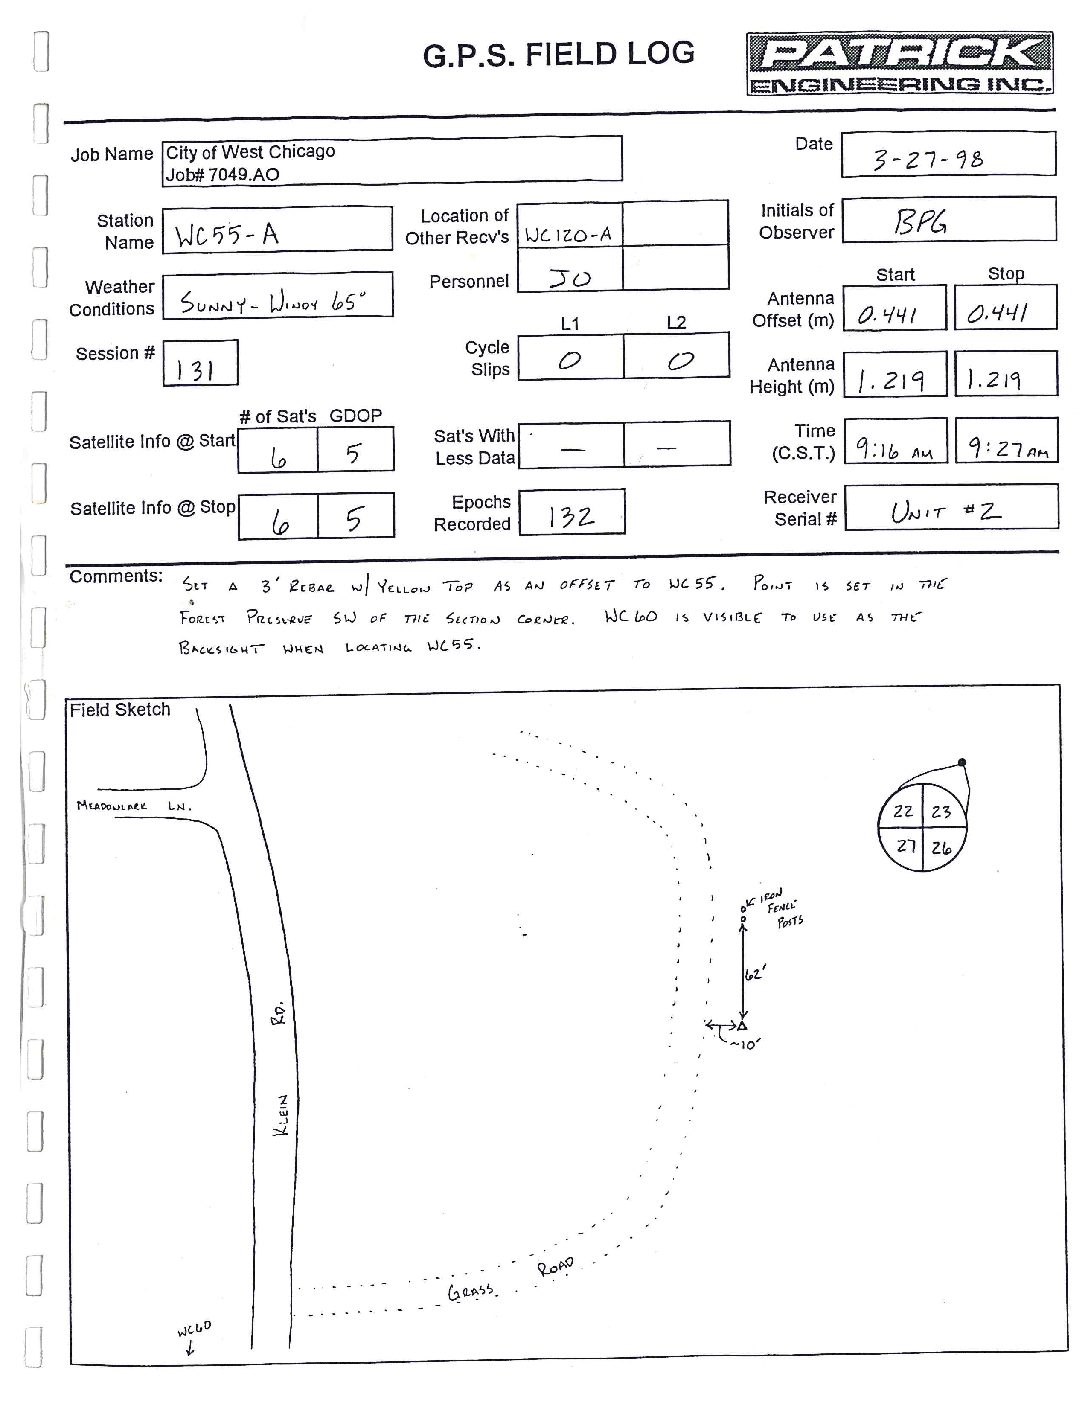 G.P.S. FIELD LOG
PATRICK
ENGINEERING INC.
Job Name
City of West Chicago
Job# 7049.AO
Date
3-27-98
Station
Name
WC55-A
Location of
Other Recv's
WC120-A
Initials of
Observer
BPG
Weather
Conditions
SUNNY - WINDY 65°
Personnel
JO
Start
Stop
Antenna
Offset (m)
0.441
0.441
Session #
131
L1
L2
Cycle
Slips
0
0
Antenna
Height (m)
1.219
1.219
# of Sat's
GDOP
Satellite Info @ Start
6
5
Sat's With
Less Data
—
—
Time
(C.S.T.)
9:16 AM
9:27 AM
Satellite Info @ Stop
6
5
Epochs
Recorded
132
Receiver
Serial #
UNIT #2
Comments:
SET A 3' REBAR W/ YELLOW TOP AS AN OFFSET TO WC55. POINT IS SET IN THE
FOREST PRESERVE SW OF THE SECTION CORNER. WC60 IS VISIBLE TO USE AS THE
BACKSIGHT WHEN LOCATING WC55.
Field Sketch
MEADOWLARK LN.
22
23
27
26
IRON
FENCE
POSTS
62'
~10'
KLEIN RD.
GRASS ROAD
WC60